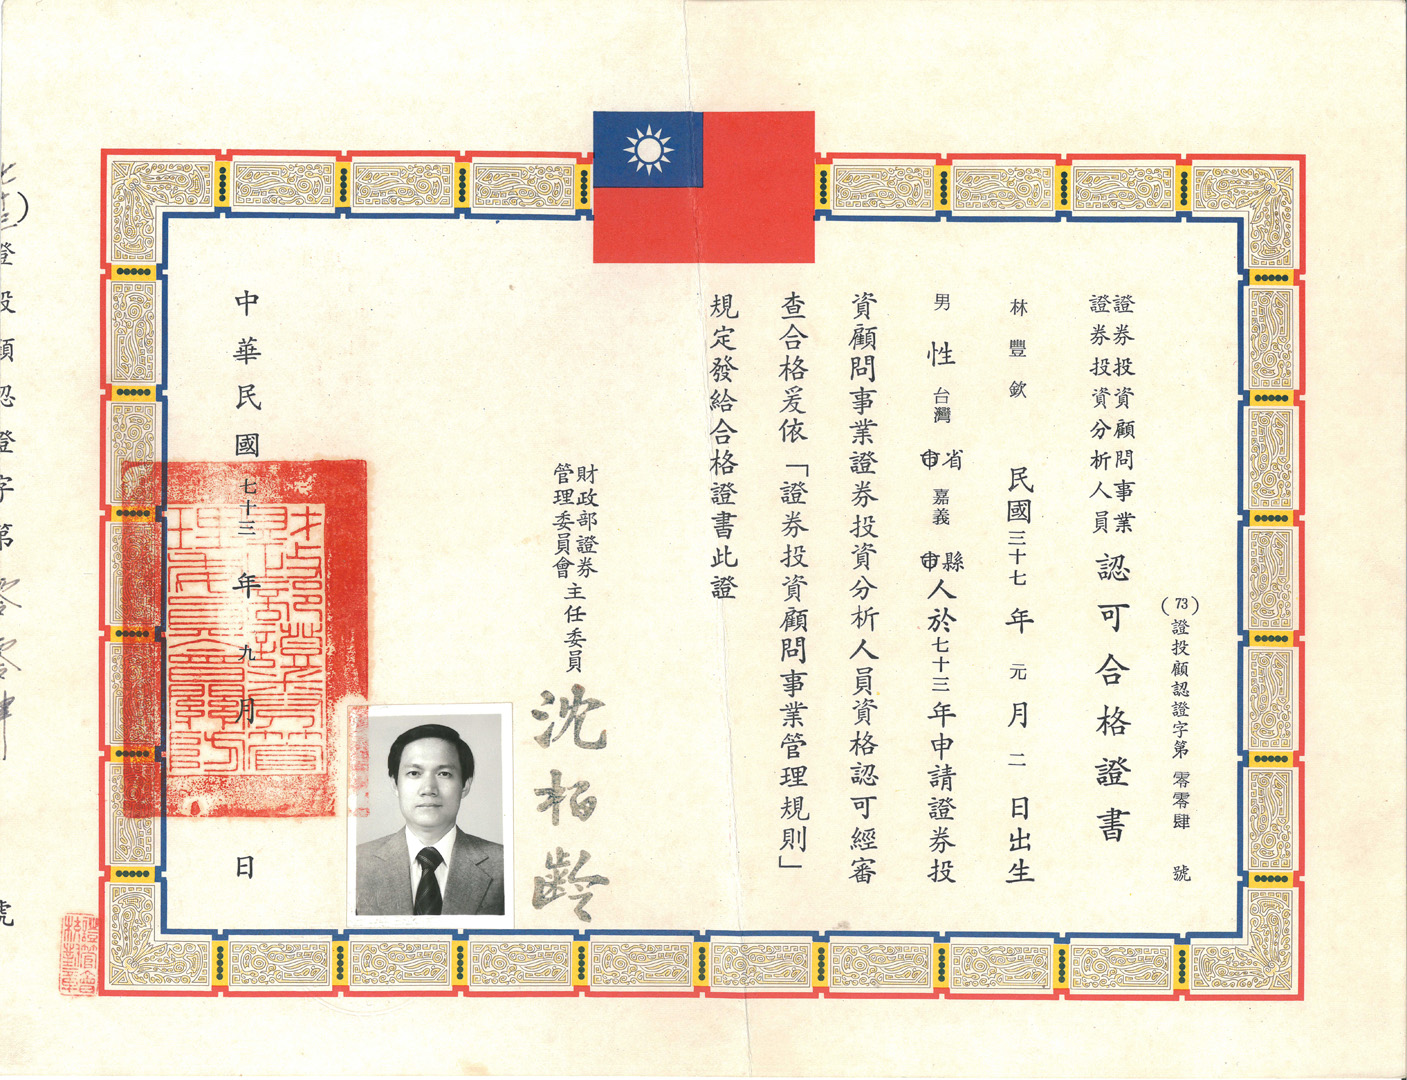 證券投資顧問事業
證券投資分析人員
認可合格證書
(73)證投顧認證字第零零肆號
林豐欽 民國三十七年元月二日出生
男性台灣省市嘉義縣市人於七十三年申請證券投
資顧問事業證券投資分析人員資格認可經審
查合格爰依「證券投資顧問事業管理規則」
規定發給合格證書此證
財政部證券
管理委員會
主任委員
沈柏齡
中華民國七十三年九月日